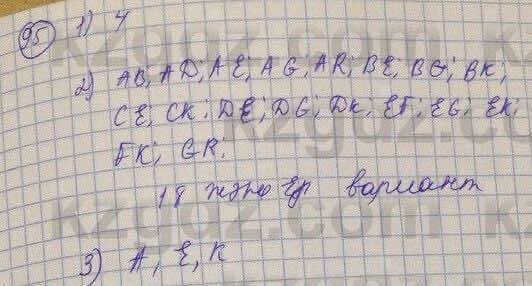 95 1) 4
2) AB; AD; AE; AG; AR; BE; BG; BK;
CE; CK; DE; DG; DK; EF; EG; EK;
FK; GR;
18 вариант
3) A, E, K
kzgdz.com